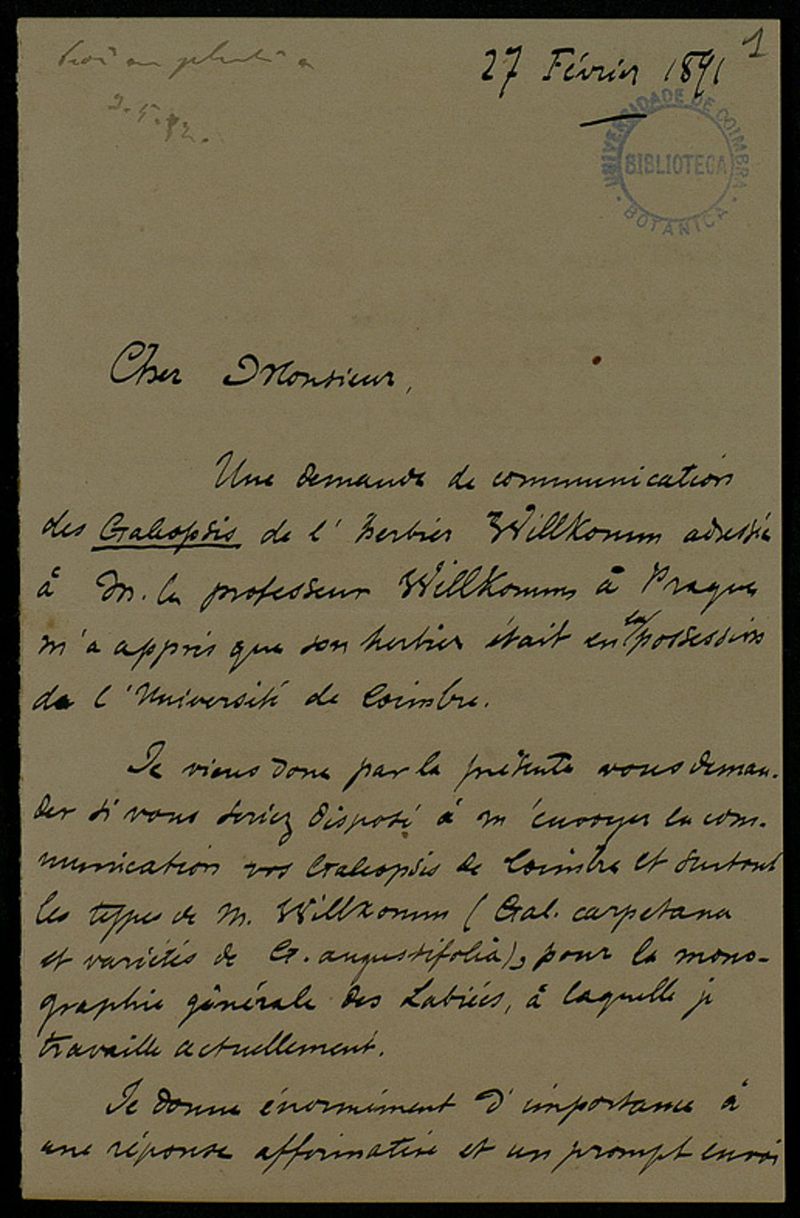 1
27 Février 1891
UNIVERSIDADE DE COIMBRA
BIBLIOTECA
BOTANICA
2.5.92.
Cher Monsieur,
Une demande de communication
des Galeopsis de l'herbier Willkomm adressée
à M. le professeur Willkomm à Prague
m'a appris que son herbier était en la possession
de l'Université de Coimbre.
Je viens donc par la présente vous deman-
der si vous seriez disposé à m'envoyer en com-
munication vos Galeopsis de Coimbre et surtout
les types de M. Willkomm (Gal. carpetana
et variétés de G. angustifolia), pour la mono-
graphie générale des Labiées, à laquelle je
travaille actuellement.
Je donne énormément d'importance à
une réponse affirmative et un prompt envoi